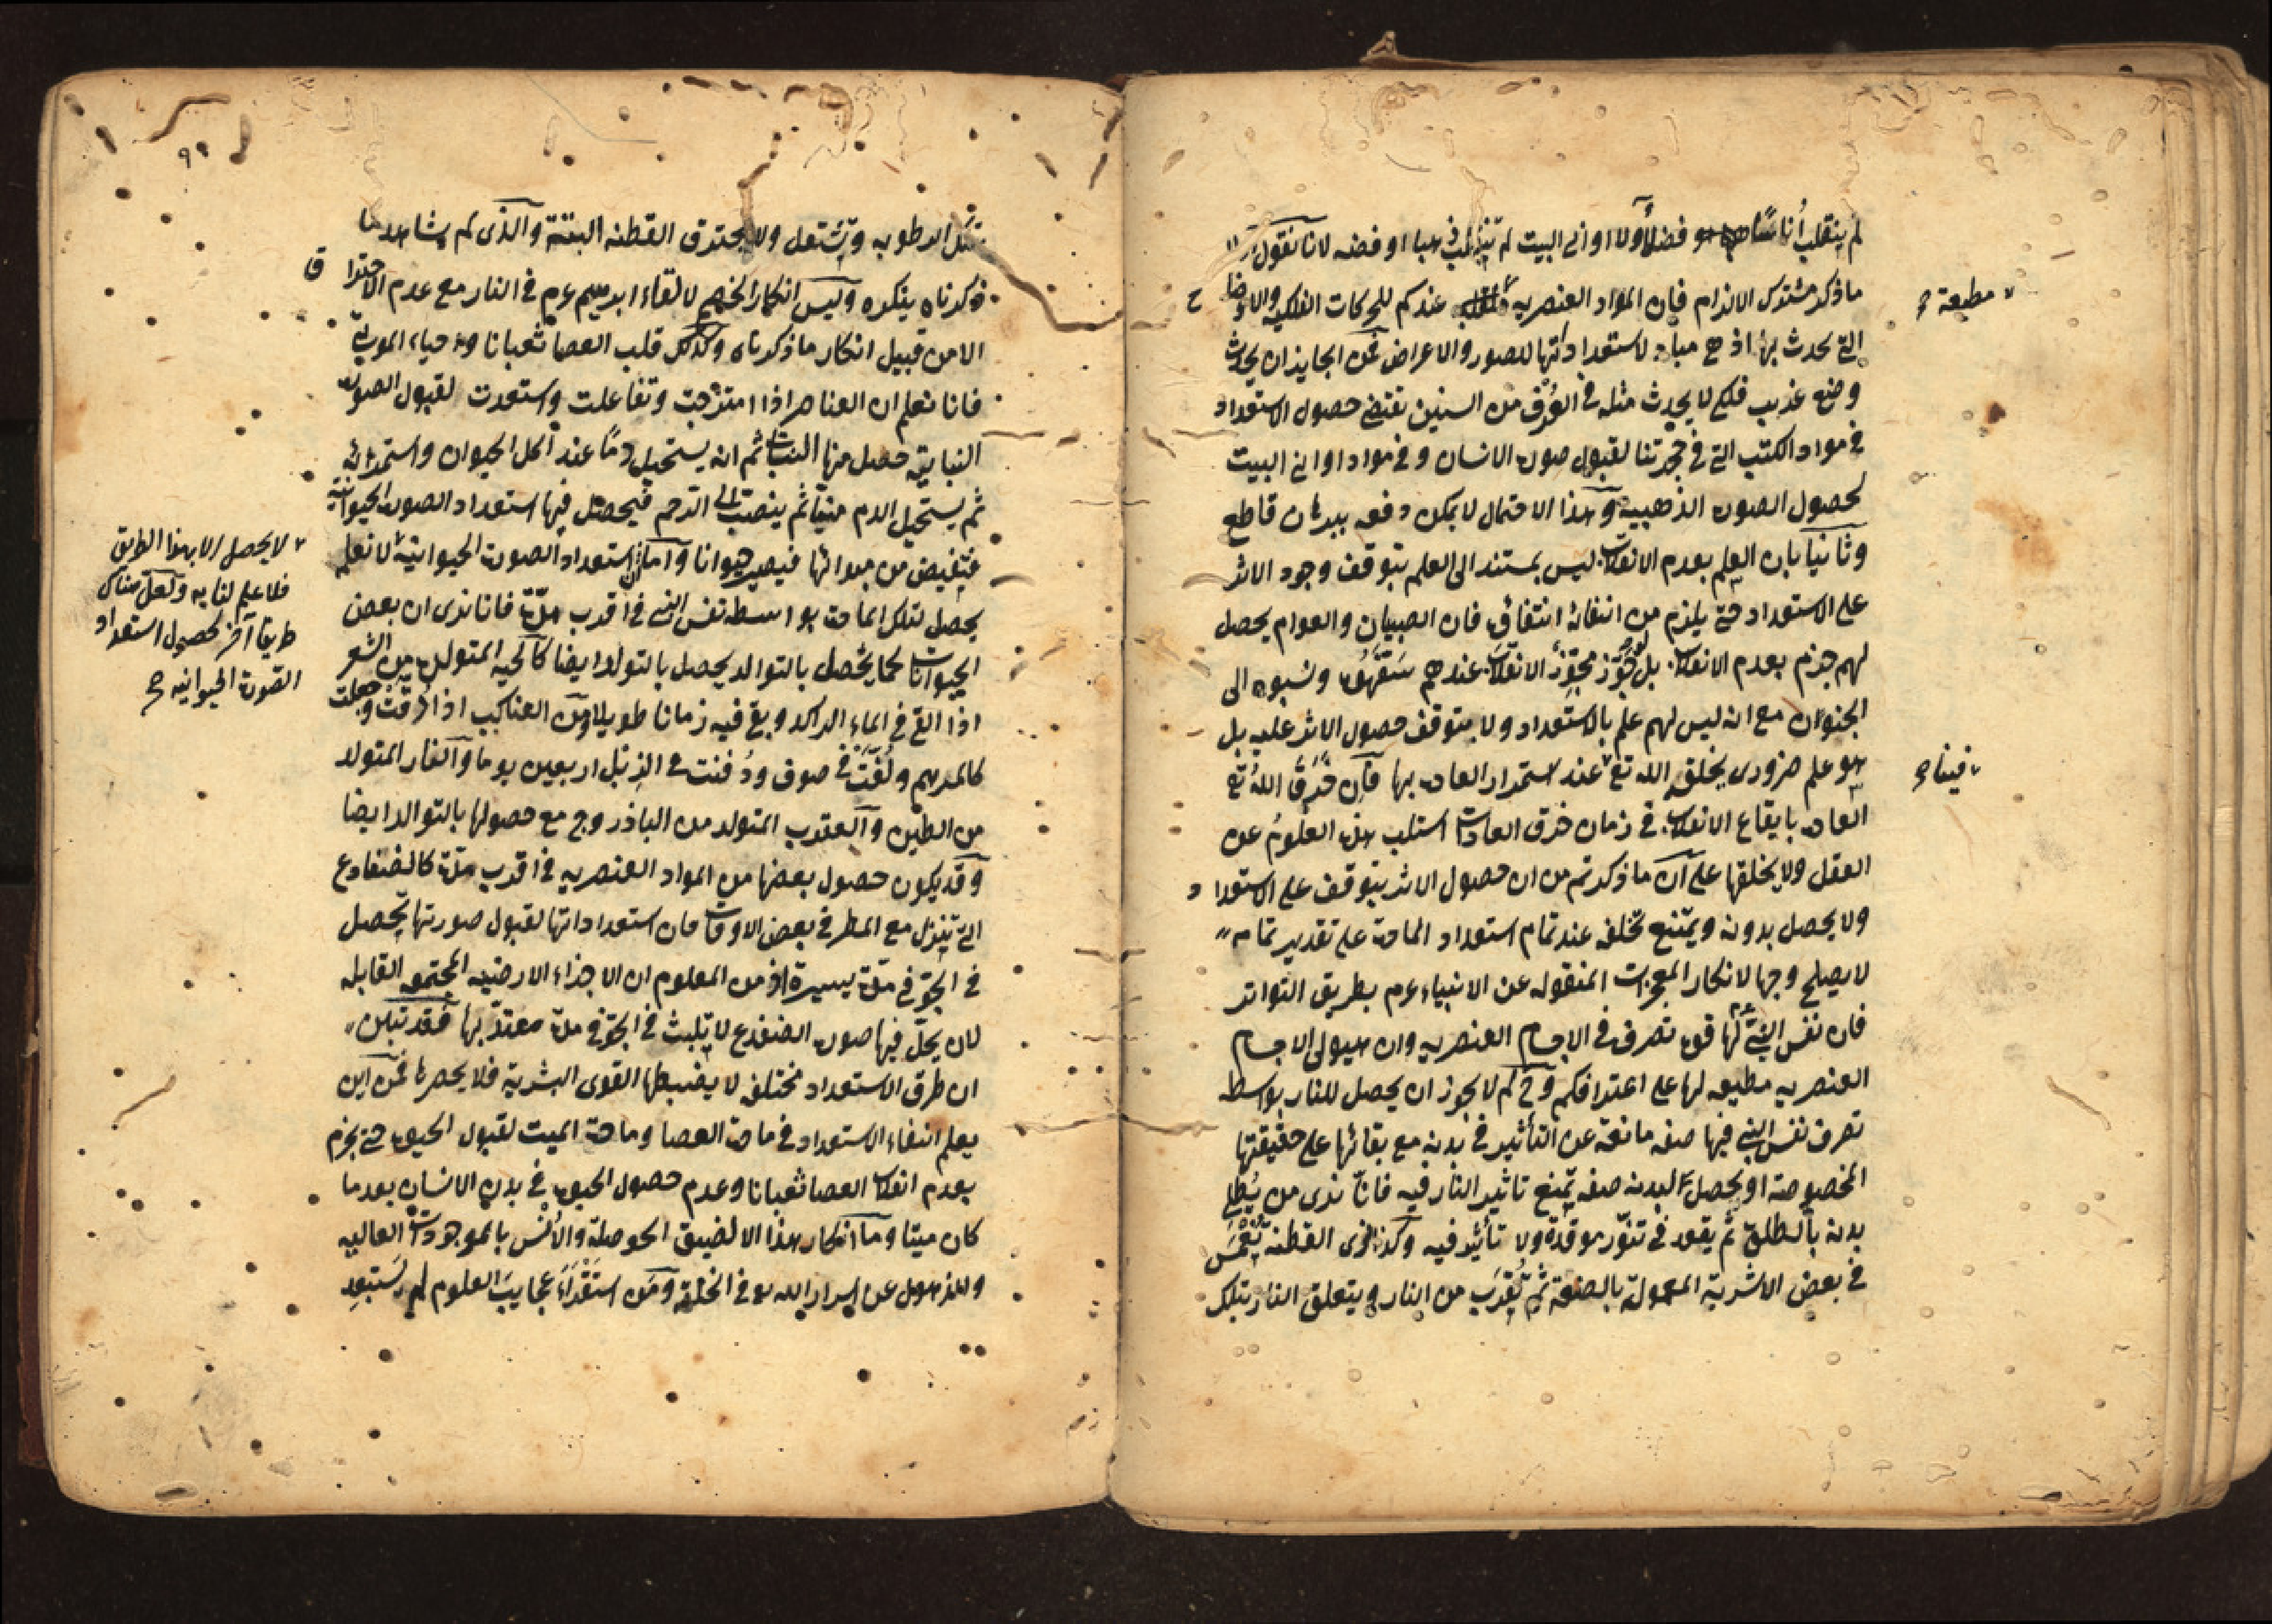 لم ينقلب أناسًا فضلاً ولا اوانى البيت لم تنقلب ذهبا او فضه لانا نقول
ما ذكر مشترك الالزام فان المواد العنصريه عندكم للحركات الفلكيه والاوضاع
التى يحدث بها اذ هى مباد لاستعداداتها للصور والاعراض فمن الجايز ان يحدث
وضع غريب فلكى لا يحدث مثله فى الوف من السنين تقتضى حصول الاستعداد
فى مواد الكتب التى فى حجرتنا لقبول صورة الانسان وفى مواد اوانى البيت
لحصول الصورة الذهبيه وهذا الاحتمال لا يمكن دفعه ببرهان قاطع
وثانيا بان العلم بعدم الانقلاب ليس بمستند الى العلم بتوقف وجود الاثر
على الاستعداد حتى يلزم من انتفائه انتفاؤه فان الصبيان والعوام يحصل
لهم جزم بعدم الانقلاب بل لو جوّز مجوّز الانقلاب عندهم سفّهوه ونسبوه الى
الجنون مع انه ليس لهم علم بالاستعداد ولا بتوقف حصول الاثر عليه بل
هو علم ضرورى يخلقه الله تع عند استمرار العادة بها فان خرق الله تع
العادة بايقاع الانقلاب فى زمان خرق العادات استلب هذه العلوم عن
العقل ولا يخلقها على ان ما ذكرتم من ان حصول الاثر يتوقف على الاستعداد
ولا يحصل بدونه ويمتنع تخلفه عند تمام استعداد المادة على تقدير تمامه
لا يصلح وجها لانكار المعجزات المنقوله عن الانبياء عم بطريق التواتر
فان نفس النبى عم لها قوة تصرف فى الاجسام العنصريه وان هيولى الاجسام
العنصريه مطيعه لها على اعترافكم وح لم لا يجوز ان يحصل للنار بواسطه
تصرف نفس النبى فيها صفه مانعة عن التأثير فى بدنه مع بقائها على حقيقتها
المخصوصة او يحصل لبدنه صفه تمنع تاثير النار فيه فانا نرى من يُطلى
بدنه بالطلق ثم يقعد فى تنّور موقدة ولا تأثير فيه وكذا نرى القطنة تُغمَس
فى بعض الاشربة المعمولة بالصنعة ثم تُقرَب من النار ويتعلق النار بتلك
مطيعة
فينا
تلك الرطوبه وتشتعل ولا يحترق القطنه البتة والذى لم يشاهد ما
ذكرناه ينكره وليس انكار الخصم لالقاء ابرهيم عم فى النار مع عدم الاحتراق
الا من قبيل انكار ما ذكرناه وكذلك قلب العصا ثعبانا واحياء الموتى
فانا نعلم ان العناصر اذا امتزجت وتفاعلت واستعدت لقبول الصورة
النباتية حصل منها النبات ثم انه يستحيل دمًا عند اكل الحيوان واستمرائه
ثم يستحيل الدم منيّا ثم ينصبّ الى الرحم فيحصل فيها استعداد الصورة الحيوانية
فتفيض من مبدائها فيصير حيوانا واما ان استعداد الصورة الحيوانية لا نعلمه
يحصل لتلك المادة بواسطه نفس النبى فى اقرب مدّة فانا نرى ان بعض
الحيوانات كما يحصل بالتوالد يحصل بالتولد ايضا كالحيه المتولدة من الشعر
اذا القى فى الماء الراكد وبقى فيه زمانا طويلا ومن العناكب اذا دُقّت وجعلت
كالمرهم ولُفّت فى صوف ودُفنت فى الزبل اربعين يوما والفار المتولد
من الطين والعقرب المتولد من الباذروج مع حصولها بالتوالد ايضا
وقد يكون حصول بعضها من المواد العنصريه فى اقرب مدّة كالضفادع
التى تنزل مع المطر فى بعض الاوقات فان استعداداتها لقبول صورتها تحصل
فى الجوّ فى مدة يسيرة اذ من المعلوم ان الاجزاء الارضيه المجتمعه القابله
لان يحلّ فيها صورة الضفدع لا تلبث فى الجوّ فى مدة معتدّ بها فقد تبين
ان طرق الاستعداد مختلفه لا يضبطها القوى البشرية فلا يحصرها فمن اين
يعلم انتفاء الاستعداد فى مادة العصا ومادة الميت لقبول الحيوة حتى يجزم
بعدم انقلاب العصا ثعبانا وعدم حصول الحيوة فى بدن الانسان بعد ما
كان ميتا وما انكار هذا الا لضيق الحوصلة والأنس بالموجودات العاليه
والذهول عن اسرار الله تع فى الخلقة ومن استقراء عجايب العلوم لم يستبعد
لا يحصل الا بهذا الطريق
فلا علم لنا به ولعل هناك
طريقا آخر لحصول استعداد
الصورة الحيوانيه